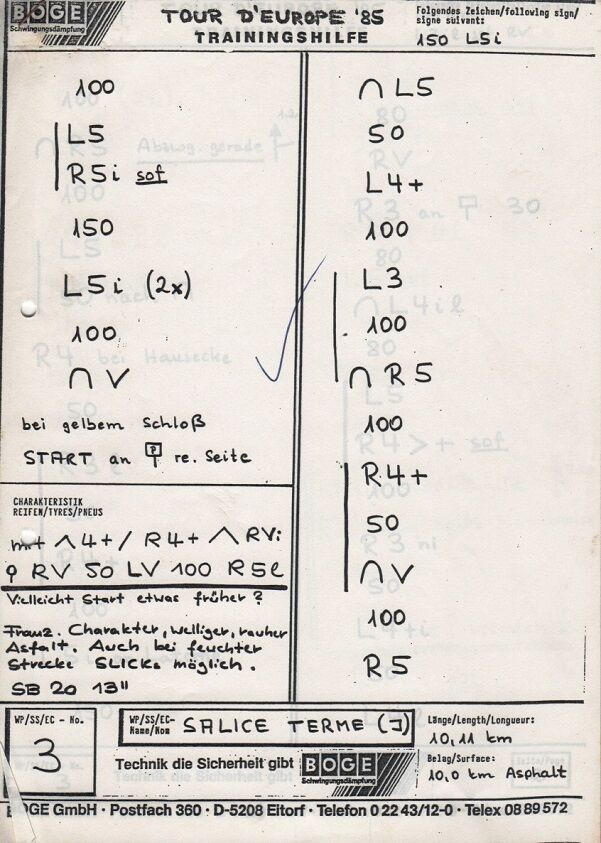 BOGE
Schwingungsdämpfung
TOUR D'EUROPE '85
TRAININGSHILFE
Folgendes Zeichen/following sign/
signe suivant:
150 L5i
100
L5
R5i sof
150
L5i (2x)
100
∩ V
bei gelbem Schloß
START an re. Seite
CHARAKTERISTIK
REIFEN/TYRES/PNEUS
∧ 4+/ R4+ ∧ RVi
RV 50 LV 100 R5l
Vielleicht Start etwas früher?
Franz. Charakter, welliger, rauher
Asfalt. Auch bei feuchter
Strecke SLICKs möglich.
SB 20 13"
∩ L5
50
L4+
100
L3
100
∩ R5
100
R4+
50
∩V
100
R5
WP/SS/EC - No.
3
WP/SS/EC-
Name/Nom
SALICE TERME (J)
Technik die Sicherheit gibt
BOGE
Schwingungsdämpfung
Länge/Length/Longueur:
10,11 km
Belag/Surface:
10,0 km Asphalt
BOGE GmbH · Postfach 360 · D-5208 Eitorf · Telefon 0 22 43/12-0 · Telex 08 89 572